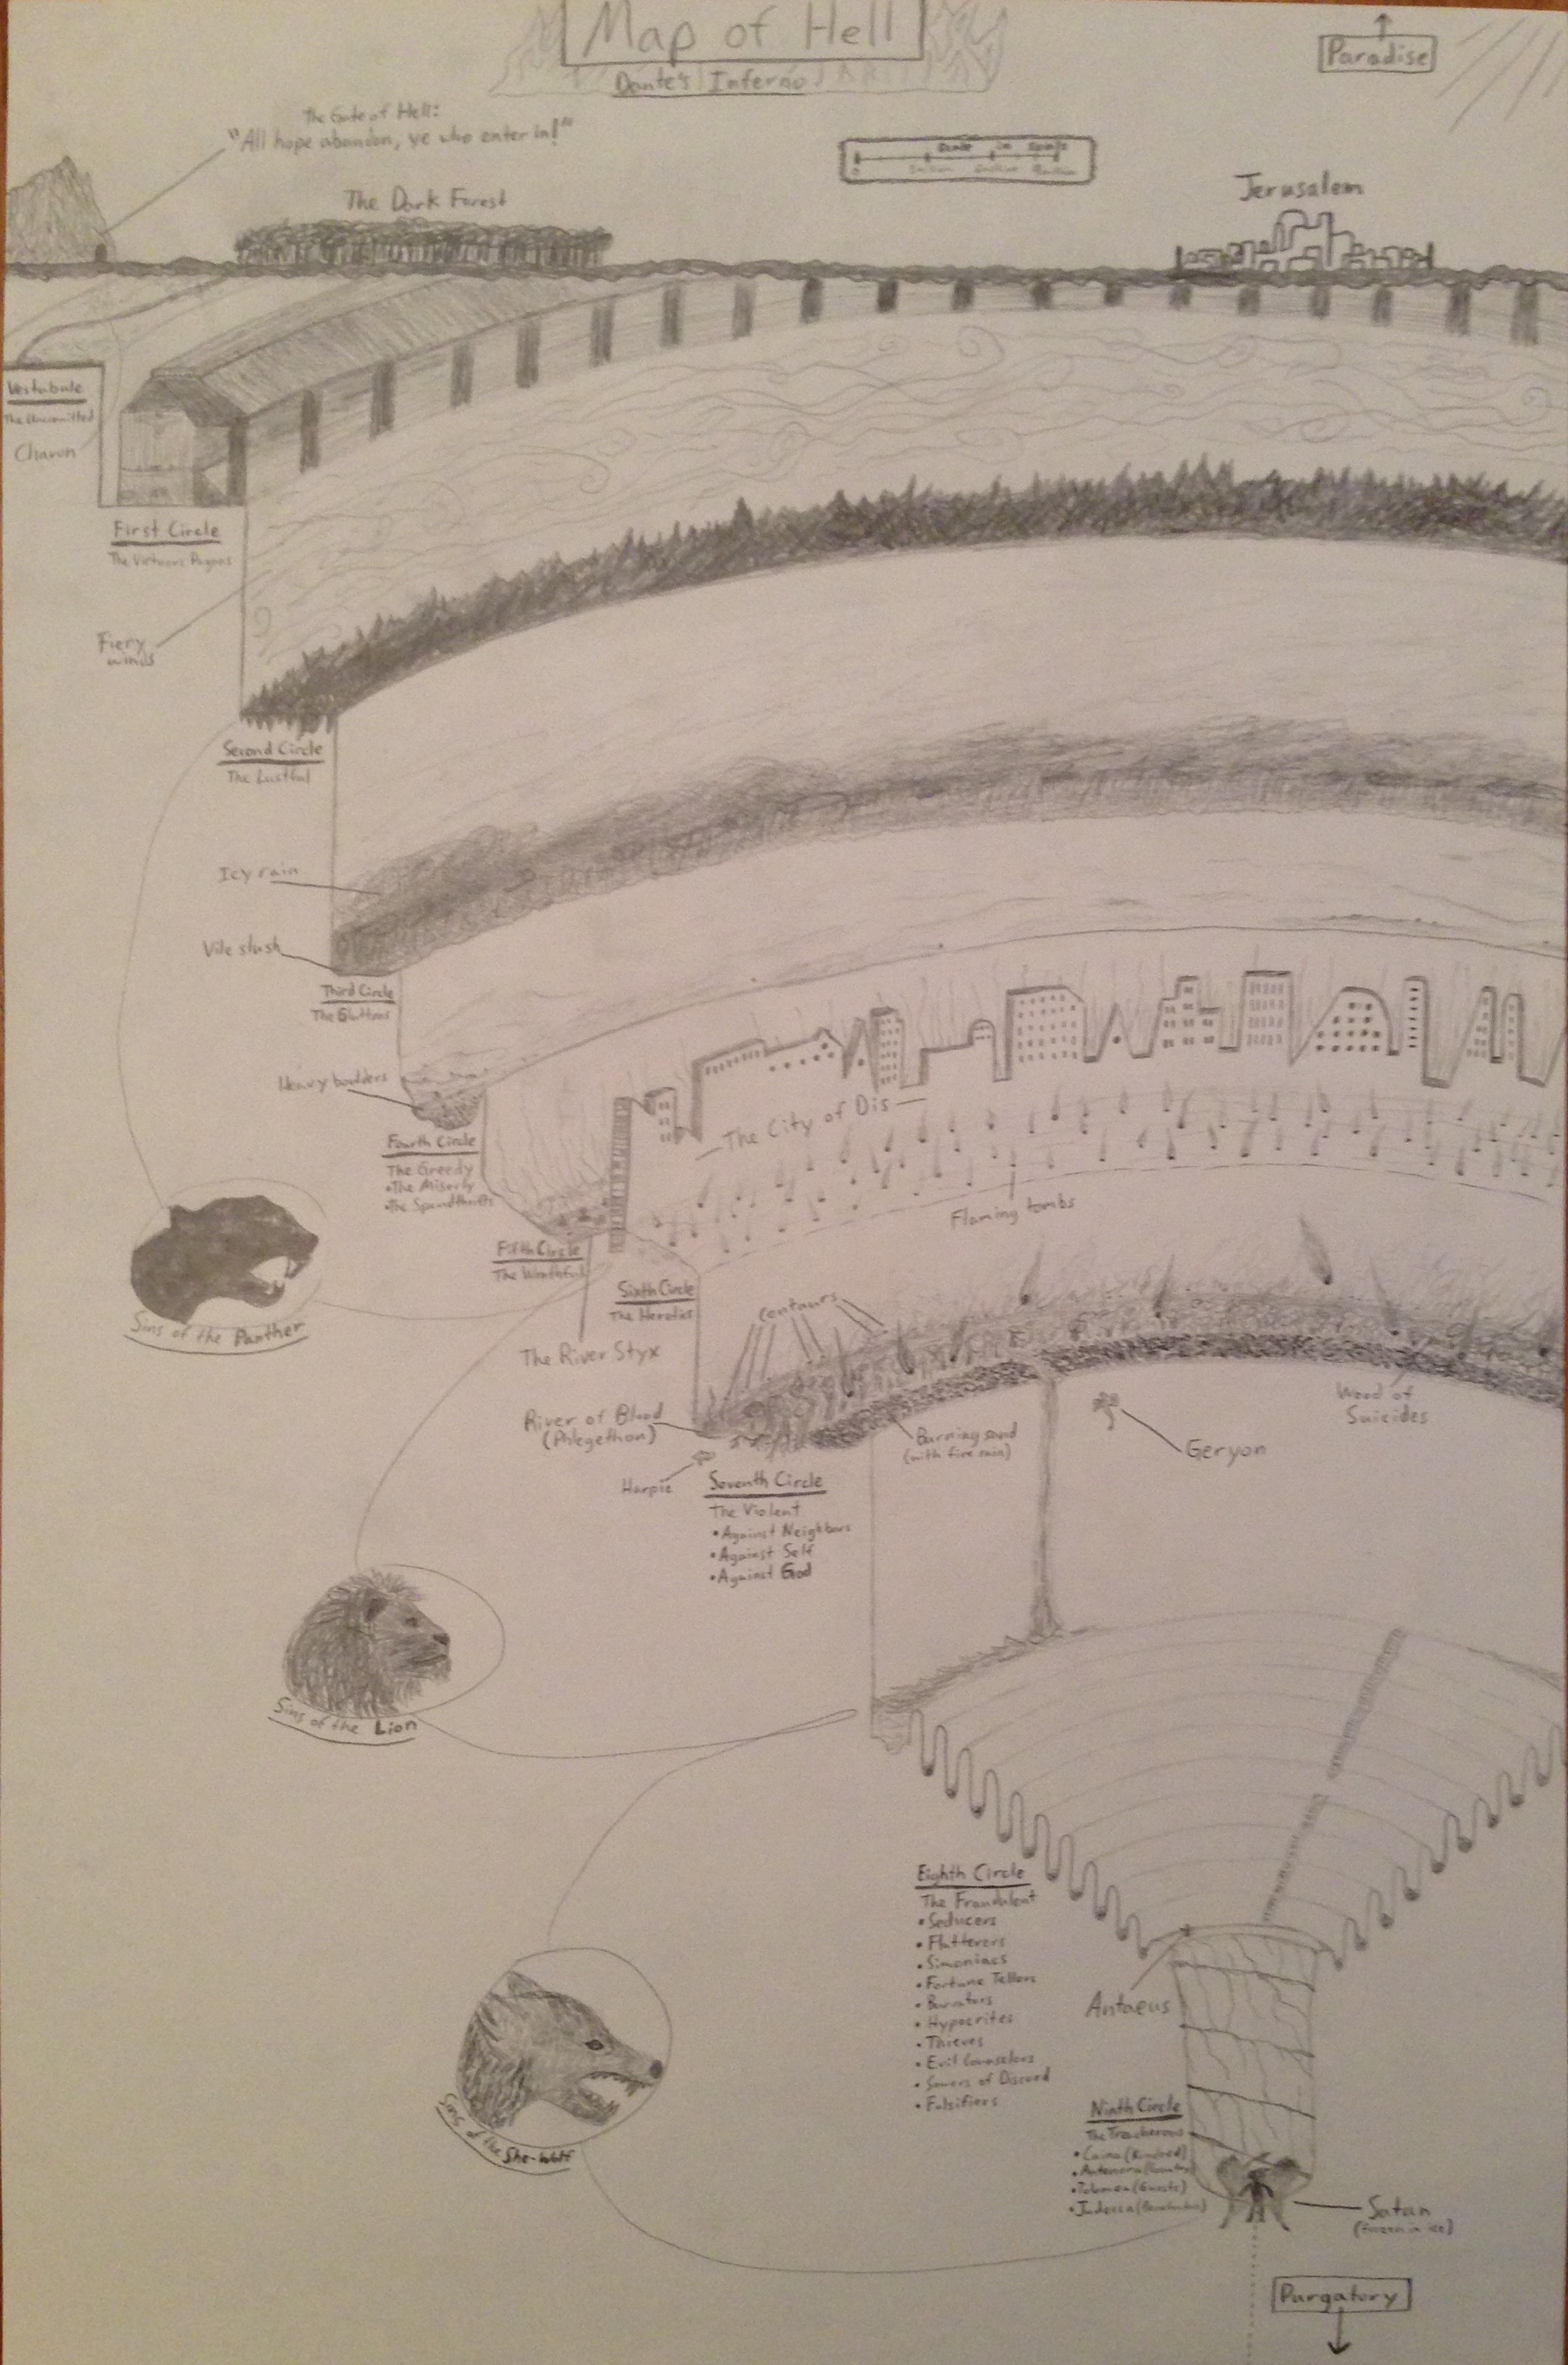 Map of Hell
Dante's Inferno
Paradise
The Gate of Hell:
"All hope abandon, ye who enter in!"
Scale in Spirits
0
The Dark Forest
Jerusalem
Vestabule
The Uncommitted
Charon
First Circle
The Virtuous Pagans
Fiery
winds
Second Circle
The Lustful
Icy rain
Vile slush
Third Circle
The Gluttons
Heavy boulders
Fourth Circle
The Greedy
•The Miserly
•The Spendthrifts
The City of Dis
Flaming tombs
Fifth Circle
The Wrathful
Sixth Circle
The Heretics
The River Styx
Sins of the Panther
Centaurs
River of Blood
(Phlegethon)
Harpie
Burning sand
(with fire rain)
Wood of
Suicides
Geryon
Seventh Circle
The Violent
•Against Neighbors
•Against Self
•Against God
Sins of the Lion
Eighth Circle
The Fraudulent
•Seducers
•Flatterers
•Simoniacs
•Fortune Tellers
•Barrators
•Hypocrites
•Thieves
•Evil Counselors
•Sowers of Discord
•Falsifiers
Antaeus
Sins of the She-Wolf
Ninth Circle
The Treacherous
•Caina (Kindred)
•Antenora (Country)
•Tolomea (Guests)
•Judecca
Satan
(frozen in ice)
Purgatory